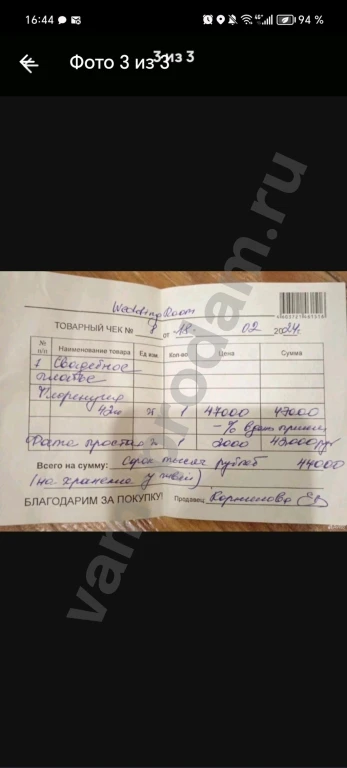 16:44
94 %
Фото 3 из 3
3 из 3
Wedding Room
ТОВАРНЫЙ ЧЕК № 8 от 18. 02 2024г.
№ п/п Наименование товара Ед. изм. Кол-во Цена Сумма
1 Свадебное
платье
Флоренция
1 47000 47000
Фата простая 1 2000
Всего на сумму: Сорок тысяч рублей 44000
(на хранение у швеи)
БЛАГОДАРИМ ЗА ПОКУПКУ! Продавец Корнилова
vamprodam.ru